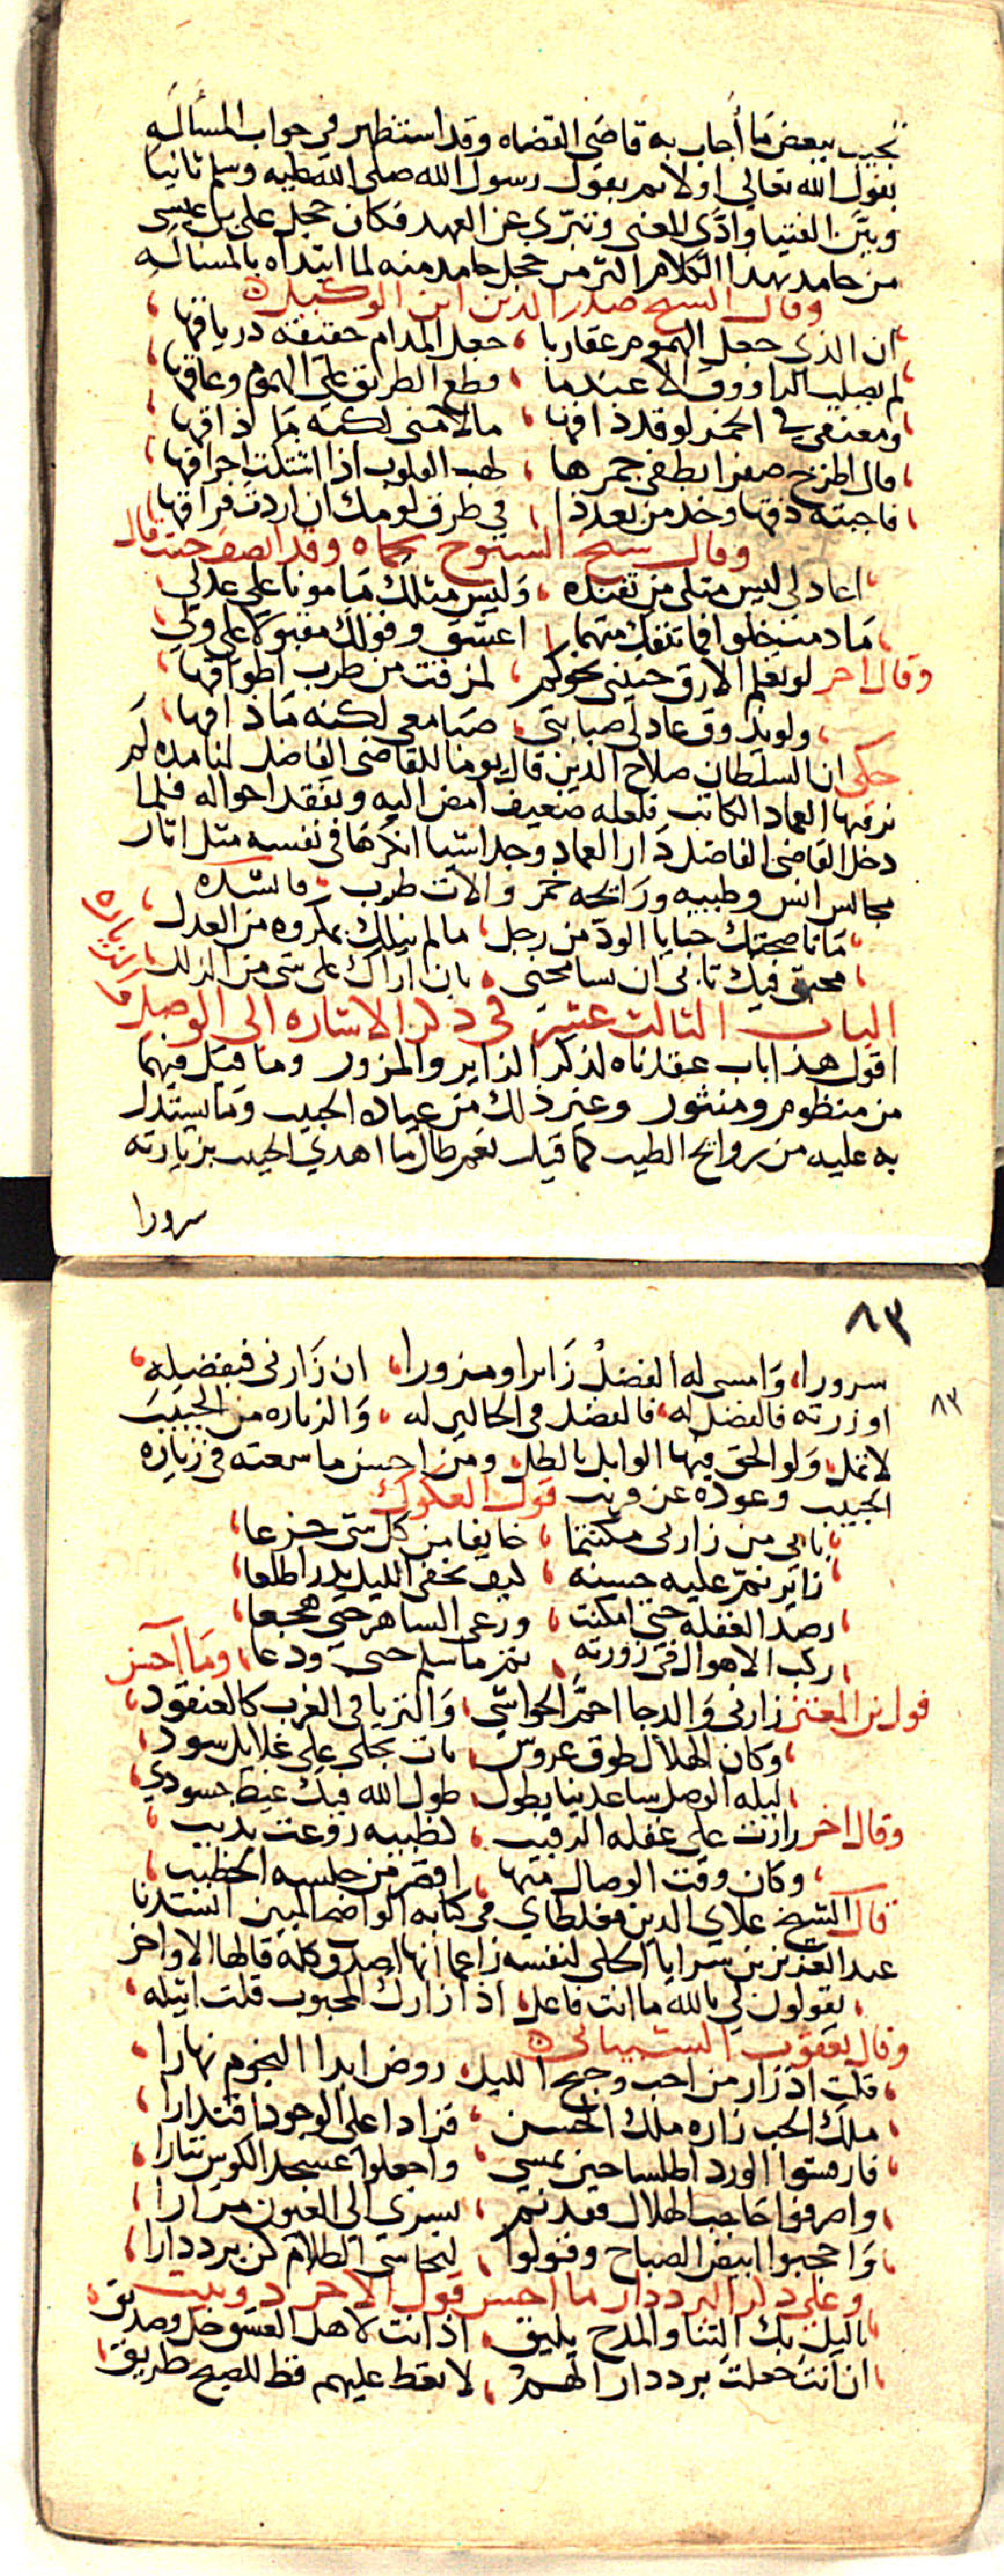 نجيب ببعض ما أجاب به قاضى القضاه وقد استظهر في جواب المسألة
بقول الله تعالى اولا ثم بقول رسول الله صلى الله عليه وسلم ثانيا
وبين الفتيا وادى المعنى وتبرى عن العهد فكان خجل على بن عيسى
من حامد بهذا الكلام اكثر من خجل حامد منه لما ابتداه بالمسالة
وقال الشيخ صدر الدين ابن الوكيل
ان الذي جعل الهموم عقاربا ، جعل المدام حقيقة درياقها
لم يصلب الراووق الا عندما ، قطع الطريق على الهموم وعاقها
ومعنفي في الخمر لو قد ذاقها ، ما لامنى لكنه ما ذاقها
قال اطرح صفرا يطفى جمرها ، لهب القلوب اذا اشتكت احراقها
فاجبته ذقها وخذ من بعد ذا ، في طرف لومك ان اردت فراقها
وقال شيخ الشيوخ بحماه وقد انصف حيث قال
اعاذلى ليس مثلى من تفنده ، وليس مثلك مامونا على عذلي
ما دمت خلوا فما تنفك متهما ، اعشق وقولك مقبولا على ولي
وقال اخر لو يعلم الارق حنينى نحوكم ، لمزقت من طرب اطواقها
ولو يذوق عاذلى صبابتى ، صبا معى لكنه ما ذاقها
حكى ان السلطان صلاح الدين قال يوما للقاضى الفاضل لنا مده لم
نر فيها العماد الكاتب فلعله ضعيف امض اليه وتفقد احواله فلما
دخل القاضى الفاضل دار العماد وجد اشيا انكرها فى نفسه مثل اثار
مجالس انس وطيبه ورايحه خمر والات طرب . فانشده
ما ناصحتك خبايا الود من رجل ، ما لم ينلك بمكروه من العذل
محبتى فيك تابى ان تسامحنى ، بان اراك على شى من الزلل
الباب الثالث عشر في ذكر الاشاره الى الوصل
والزياره
اقول هذا باب عقدناه لذكر الزاير والمزور وما قيل فيهما
من منظوم ومنثور وغير ذلك من عياده الحبيب وما يستدل
به عليه من روايح الطيب كما قيل نعم طال ما اهدي الحبيب بزيارته
سرورا
٨٣
٨٣
سرورا ، وامسى له الفضل زايرا ومزورا ، ان زارنى فبفضله
او زرته فالفضل له ، فالفضل في الحالين له ، والزياره من الحبيب
لا تمل ، ولو الحق فيها الوابل بالطل ، ومن احسن ما سمعته في زياره
الحبيب وعوده عن قرب قول العكوك
بابي من زارنى مكتتما ، خايفا من كل شى جزعا
زاير نم عليه حسنه ، كيف يخفى الليل بدرا طلعا
رصد الغفله حتى امكنت ، ورعى الساهر حتى هجعا
ركب الاهوال فى زورته ، ثم ما سلم حتى ودعا ، وما احسن
قول بن المعتز زارنى والدجا احم الحواشي ، والثريا فى الغرب كالعنقود
وكان الهلال طوق عروس ، بات يجلى على غلايل سود
ليله الوصل ساعدينا بطول ، طول الله فيك غيظ حسودي
وقال اخر زارت على غفله الرقيب ، كظبيه روعت بذيب
وكان وقت الوصال منها ، اقصر من جلسه الخطيب
قال الشيخ علاي الدين مغلطاي في كتابه الواضح المبين انشدنا
عبد العزيز بن سرايا الحلى لنفسه زاعما انها اصدق كلمه قالها الاواخر
يقولون لي بالله ما انت فاعل ، اذا زارك المحبوب قلت انيله
وقال يعقوب الشيبانى
قلت اذ زار من احب وجنح الليل ، روض ابدا النجوم نهارا
ملك الحب زاره ملك الحسن ، فزادا على الوجود اقتدارا
فارمتوا الورد اطلسا حين يمسي ، واجعلوا عسجد الكوس نثارا
واصرفوا حاجب الهلال فقد نم ، يسري الى العيون مرارا
واحجبوا ابيض الصباح وقولوا ، ليحاشى الظلام كن برددارا
وعلى ذكر البرددار ما احسن قول الاخر دوبيت
ياليل بك الثنا والمدح يليق ، اذ انت لاهل العشق خل وصديق
ان انت جعلت برددارا لهم ، لا تعط عليهم قط للصبح طريق